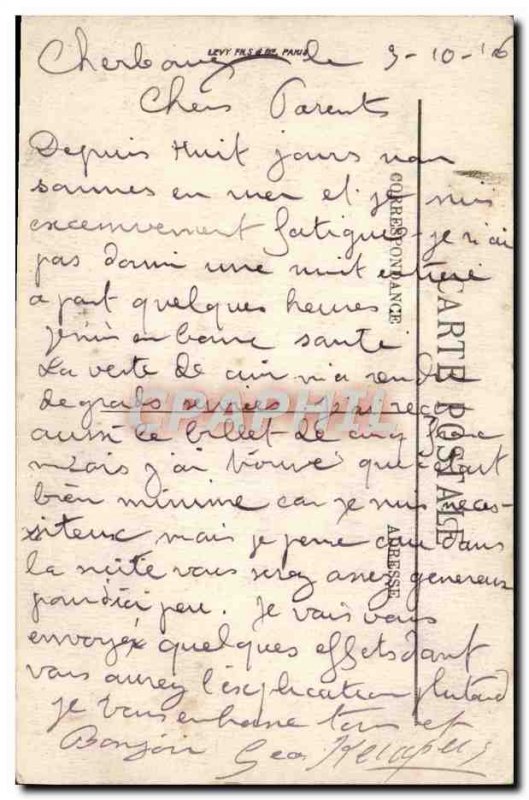 LEVY FILS & Cie, PARIS
Cherbourg le 3-10-16
Chers Parents
Depuis Huit jours nous
sommes en mer et je suis
excessivement fatigué je n'ai
pas dormi une nuit entiere
a part quelques heures
je suis en bonne santé
La veste de cuir m'a rendu
de grands services j'ai reçu
aussi ce billet de cinq franc
mais j'ai trouvé que c'etait
bien minime car je suis neces-
siteux mais je pense que dans
la suite vous serez assez genereux
pour d'ici peu. Je vais vous
envoyer quelques effets dont
vous aurez l'explication plutard
je vous embrasse tous et
Bonjour Geo
CARTE POSTALE
CORRESPONDANCE
ADRESSE
CPAPHIL